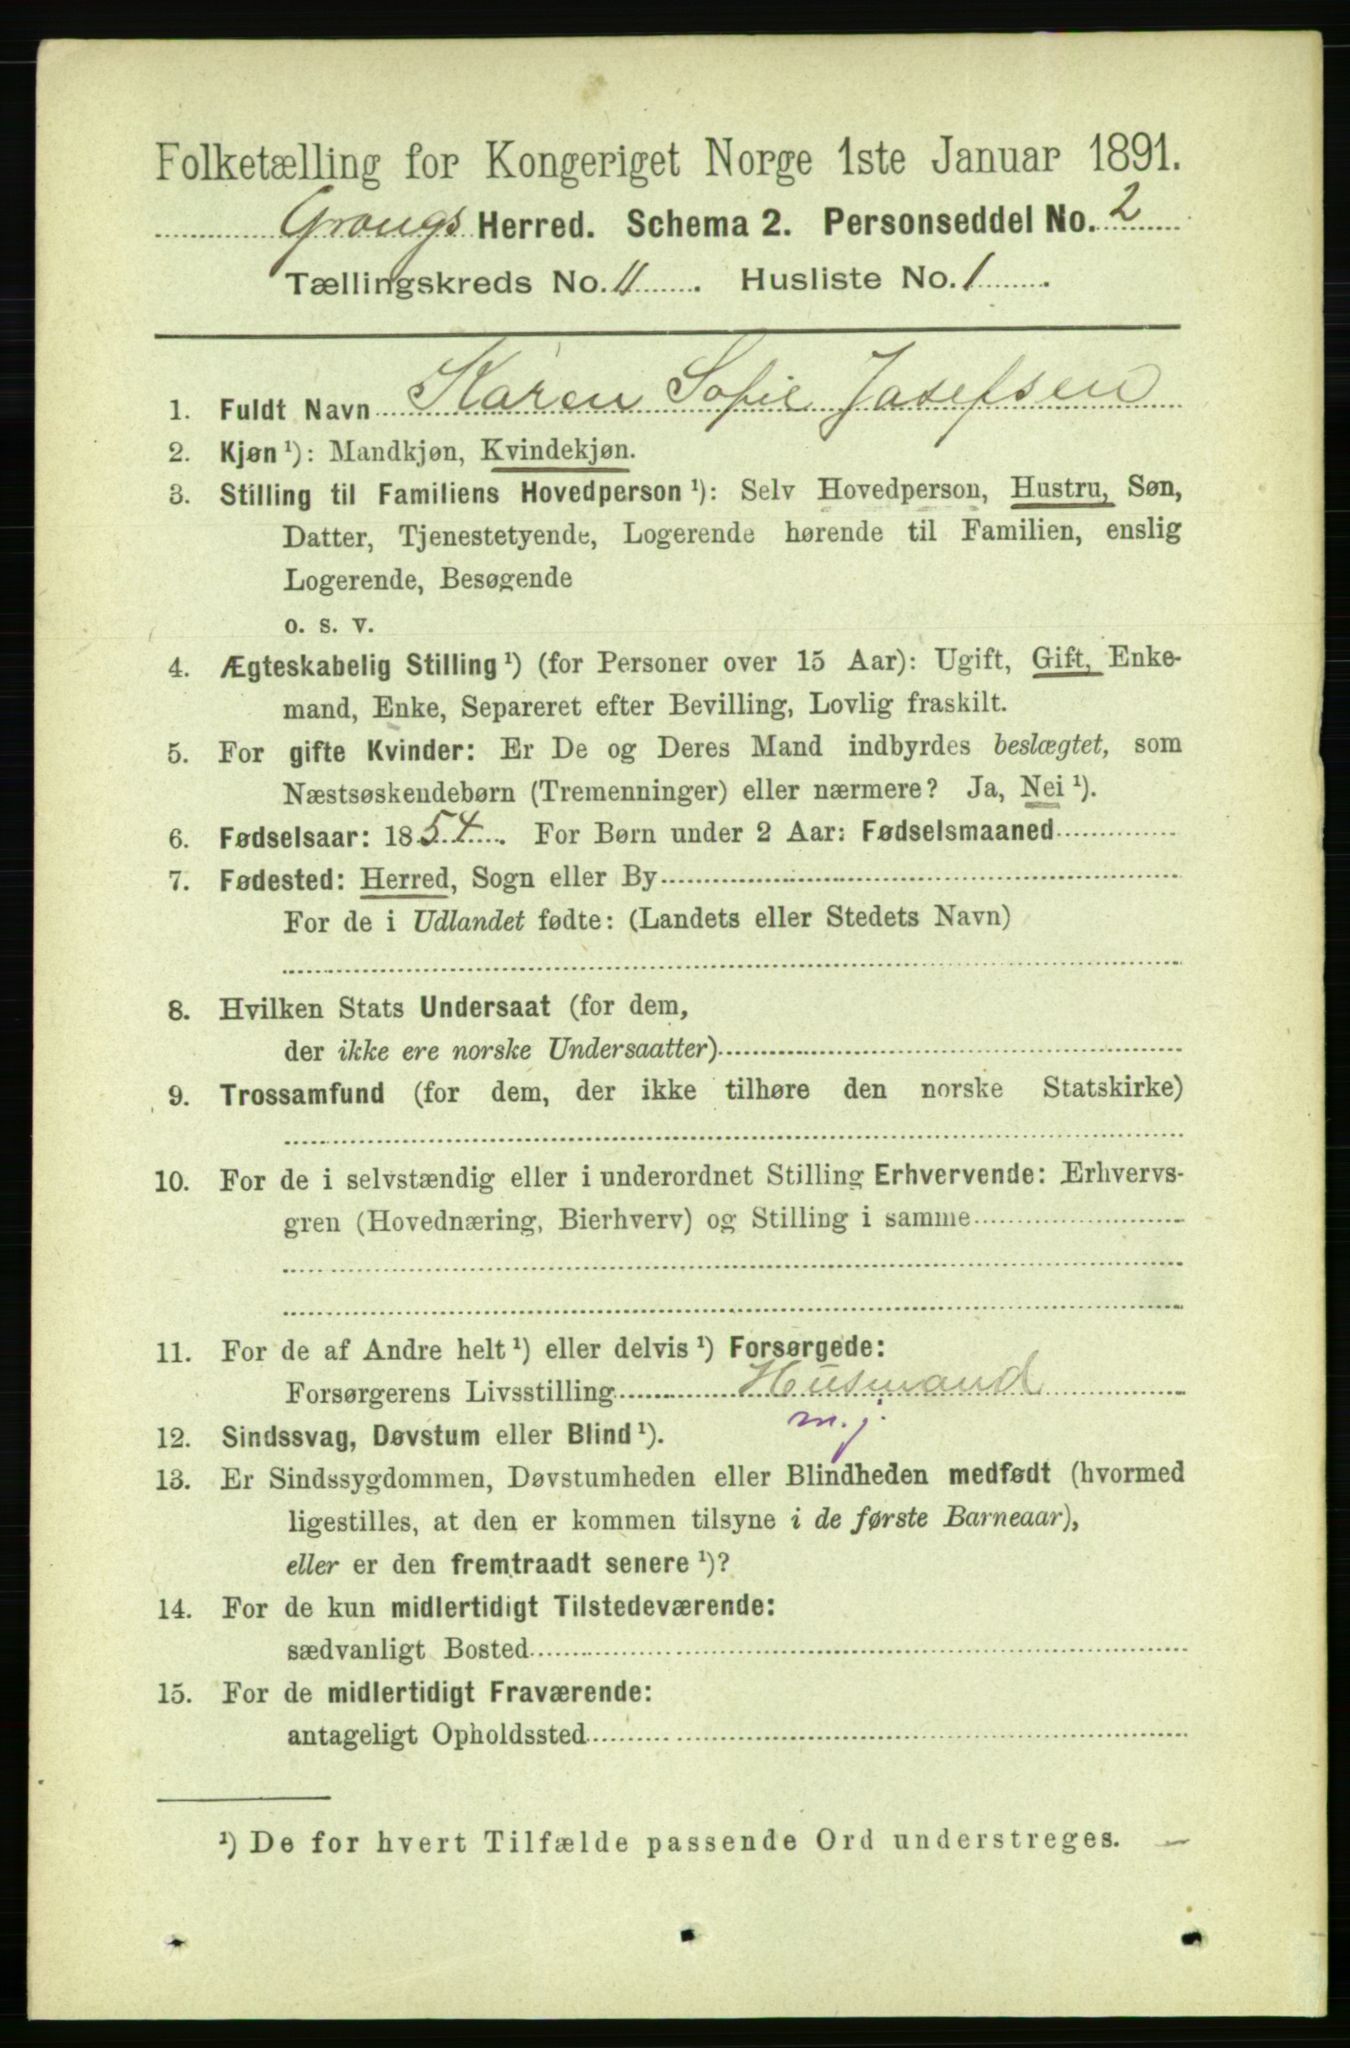 Folketælling for Kongeriget Norge 1ste Januar 1891.
Grongs Herred. Schema 2. Personseddel No. 2
Tællingskreds No. 11. Husliste No. 1.
1. Fuldt Navn Karen Sofie Josefsen
2. Kjøn ¹): Mandkjøn, Kvindekjøn.
3. Stilling til Familiens Hovedperson ¹): Selv Hovedperson, Hustru, Søn,
Datter, Tjenestetyende, Logerende hørende til Familien, enslig
Logerende, Besøgende
o. s. v.
4. Ægteskabelig Stilling ¹) (for Personer over 15 Aar): Ugift, Gift, Enke-
mand, Enke, Separeret efter Bevilling, Lovlig fraskilt.
5. For gifte Kvinder: Er De og Deres Mand indbyrdes beslægtet, som
Næstsøskendebørn (Tremenninger) eller nærmere? Ja, Nei ¹).
6. Fødselsaar: 1854. For Børn under 2 Aar: Fødselsmaaned
7. Fødested: Herred, Sogn eller By
For de i Udlandet fødte: (Landets eller Stedets Navn)
8. Hvilken Stats Undersaat (for dem,
der ikke ere norske Undersaatter)
9. Trossamfund (for dem, der ikke tilhøre den norske Statskirke)
10. For de i selvstændig eller i underordnet Stilling Erhvervende: Erhvervs-
gren (Hovednæring, Bierhverv) og Stilling i samme
11. For de af Andre helt ¹) eller delvis ¹) Forsørgede:
Forsørgerens Livsstilling Husmand
m. j.
12. Sindssvag, Døvstum eller Blind ¹).
13. Er Sindssygdommen, Døvstumheden eller Blindheden medfødt (hvormed
ligestilles, at den er kommen tilsyne i de første Barneaar),
eller er den fremtraadt senere ¹)?
14. For de kun midlertidigt Tilstedeværende:
sædvanligt Bosted
15. For de midlertidigt Fraværende:
antageligt Opholdssted
¹) De for hvert Tilfælde passende Ord understreges.